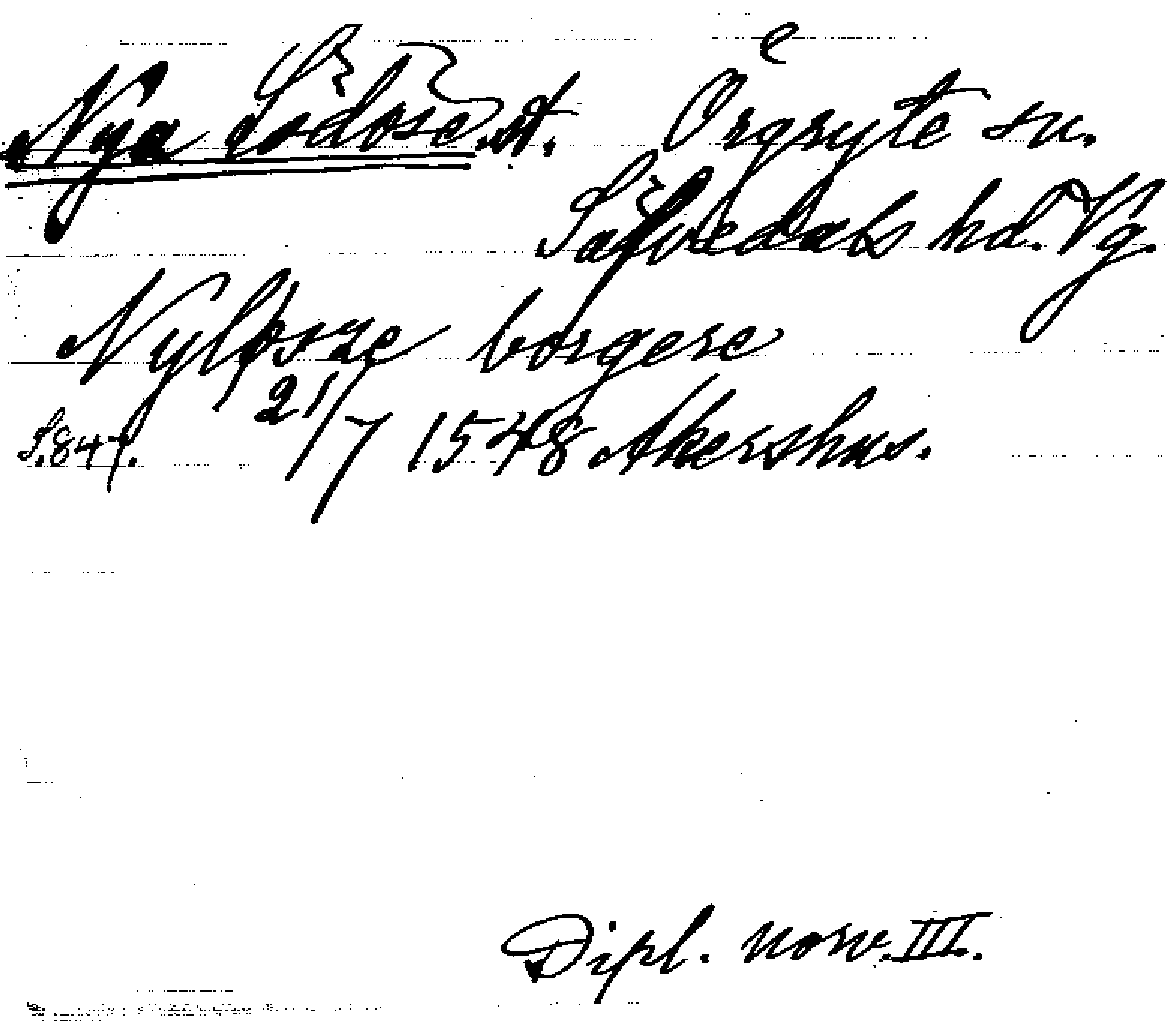 Nya Lödöse. st. Örgryte sn.
Sävedals hd. Vg.
Nylösze borgere
S. 847. 21/7 1548 Akershus.
Dipl. norv. III.